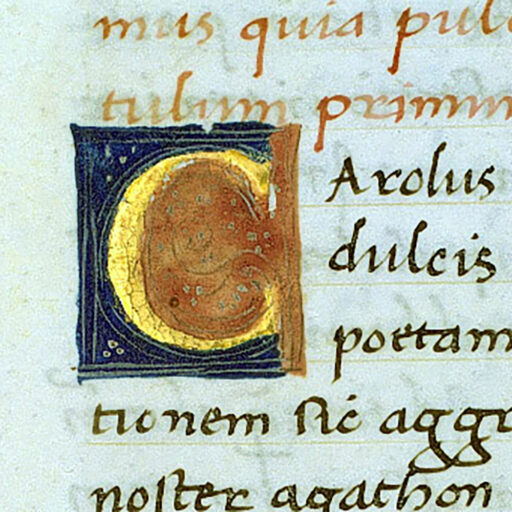 mus quia pul
tulum primum
CArolus
dulcis
poetam
tionem sic aggr
noster agathon